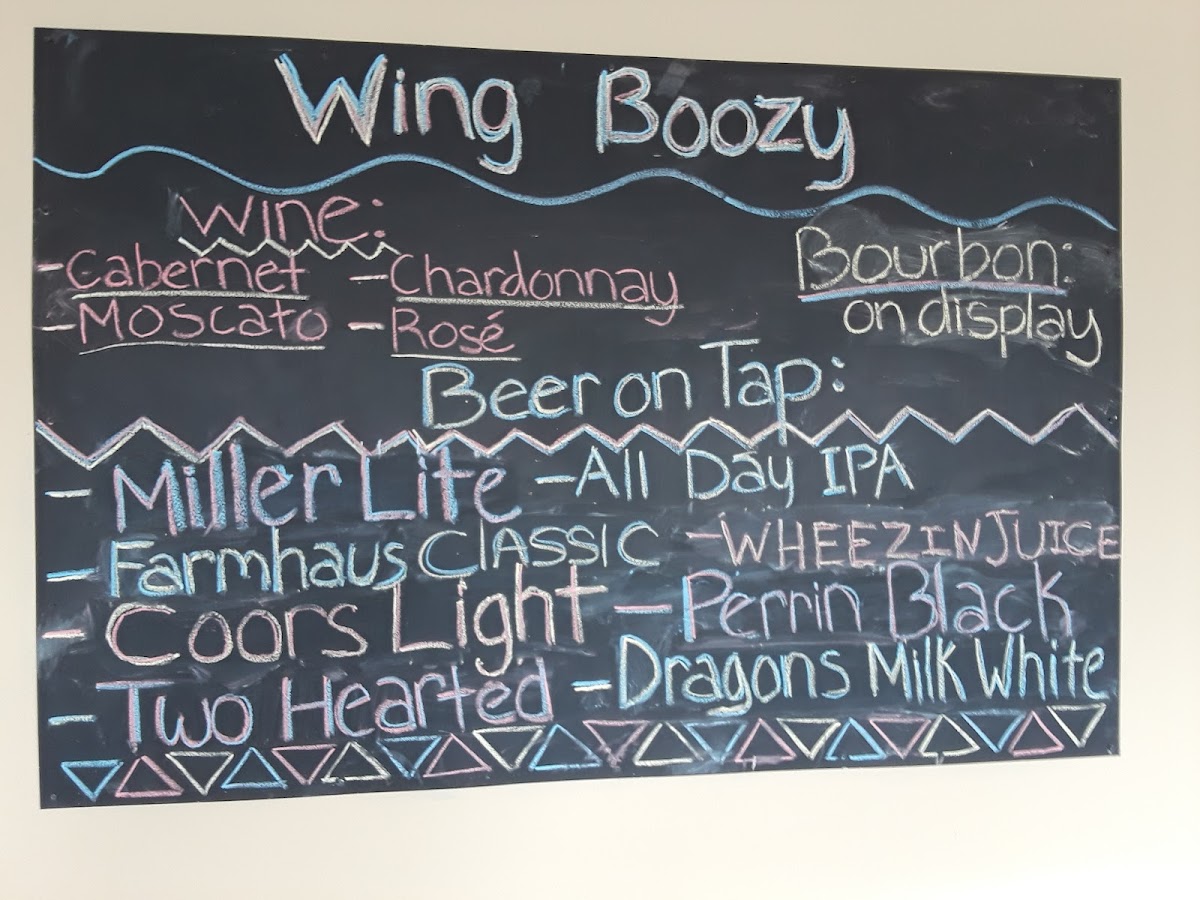 Wing Boozy
Wine:
-Cabernet -Chardonnay
-Moscato -Rosé
Bourbon:
on display
Beer on Tap:
- Miller Lite -All Day IPA
- Farmhaus Classic -WHEEZINJUICE
- Coors Light - Perrin Black
- Two Hearted -Dragons Milk White